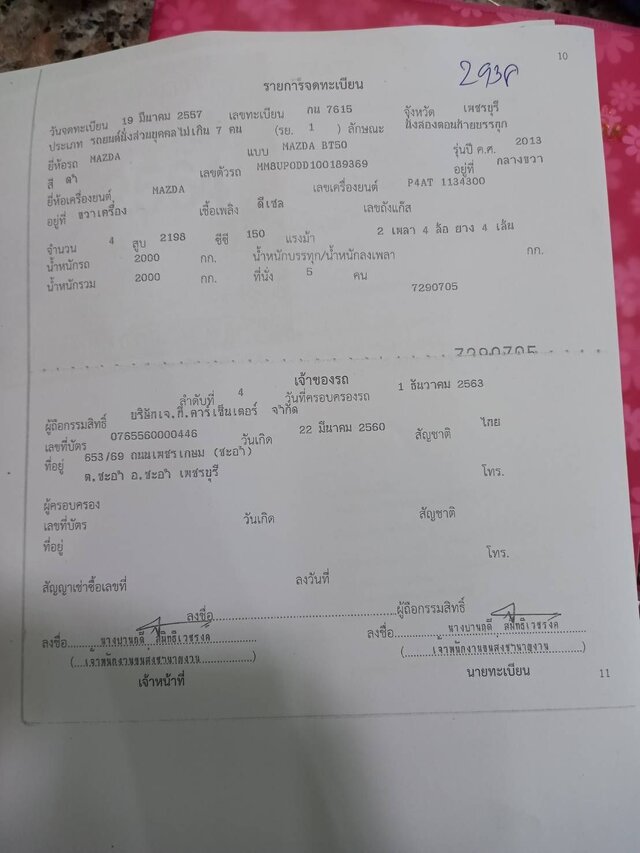 10
293
รายการจดทะเบียน
วันจดทะเบียน 19 มีนาคม 2557 เลขทะเบียน กน 7615 จังหวัด เพชรบุรี
ประเภท รถยนต์นั่งส่วนบุคคลไม่เกิน 7 คน (รย. 1 ) ลักษณะ นั่งสองตอนท้ายบรรทุก
ยี่ห้อรถ MAZDA แบบ MAZDA BT50 รุ่นปี ค.ศ. 2013
สี ดำ เลขตัวรถ MM8UP0DD100189369 อยู่ที่ กลางขวา
ยี่ห้อเครื่องยนต์ MAZDA เลขเครื่องยนต์ P4AT 1134300
อยู่ที่ ขวาเครื่อง เชื้อเพลิง ดีเซล เลขถังแก๊ส
จำนวน 4 สูบ 2198 ซีซี 150 แรงม้า 2 เพลา 4 ล้อ ยาง 4 เส้น
น้ำหนักรถ 2000 กก. น้ำหนักบรรทุก/น้ำหนักลงเพลา กก.
น้ำหนักรวม 2000 กก. ที่นั่ง 5 คน
7290705
7290705
เจ้าของรถ
ลำดับที่ 4 วันที่ครอบครองรถ 1 ธันวาคม 2563
ผู้ถือกรรมสิทธิ์ บริษัทเจ.ที.คาร์เซ็นเตอร์ จำกัด
เลขที่บัตร 0765560000446 วันเกิด 22 มีนาคม 2560 สัญชาติ ไทย
ที่อยู่ 653/69 ถนนเพชรเกษม (ชะอำ)
ต.ชะอำ อ.ชะอำ เพชรบุรี โทร.
ผู้ครอบครอง
เลขที่บัตร วันเกิด สัญชาติ
ที่อยู่ โทร.
สัญญาเช่าซื้อเลขที่ ลงวันที่
ลงชื่อ ผู้ถือกรรมสิทธิ์
ลงชื่อ ลงชื่อ
(เจ้าพนักงานขนส่งชำนาญงาน) (เจ้าพนักงานขนส่งชำนาญงาน)
เจ้าหน้าที่ นายทะเบียน
11